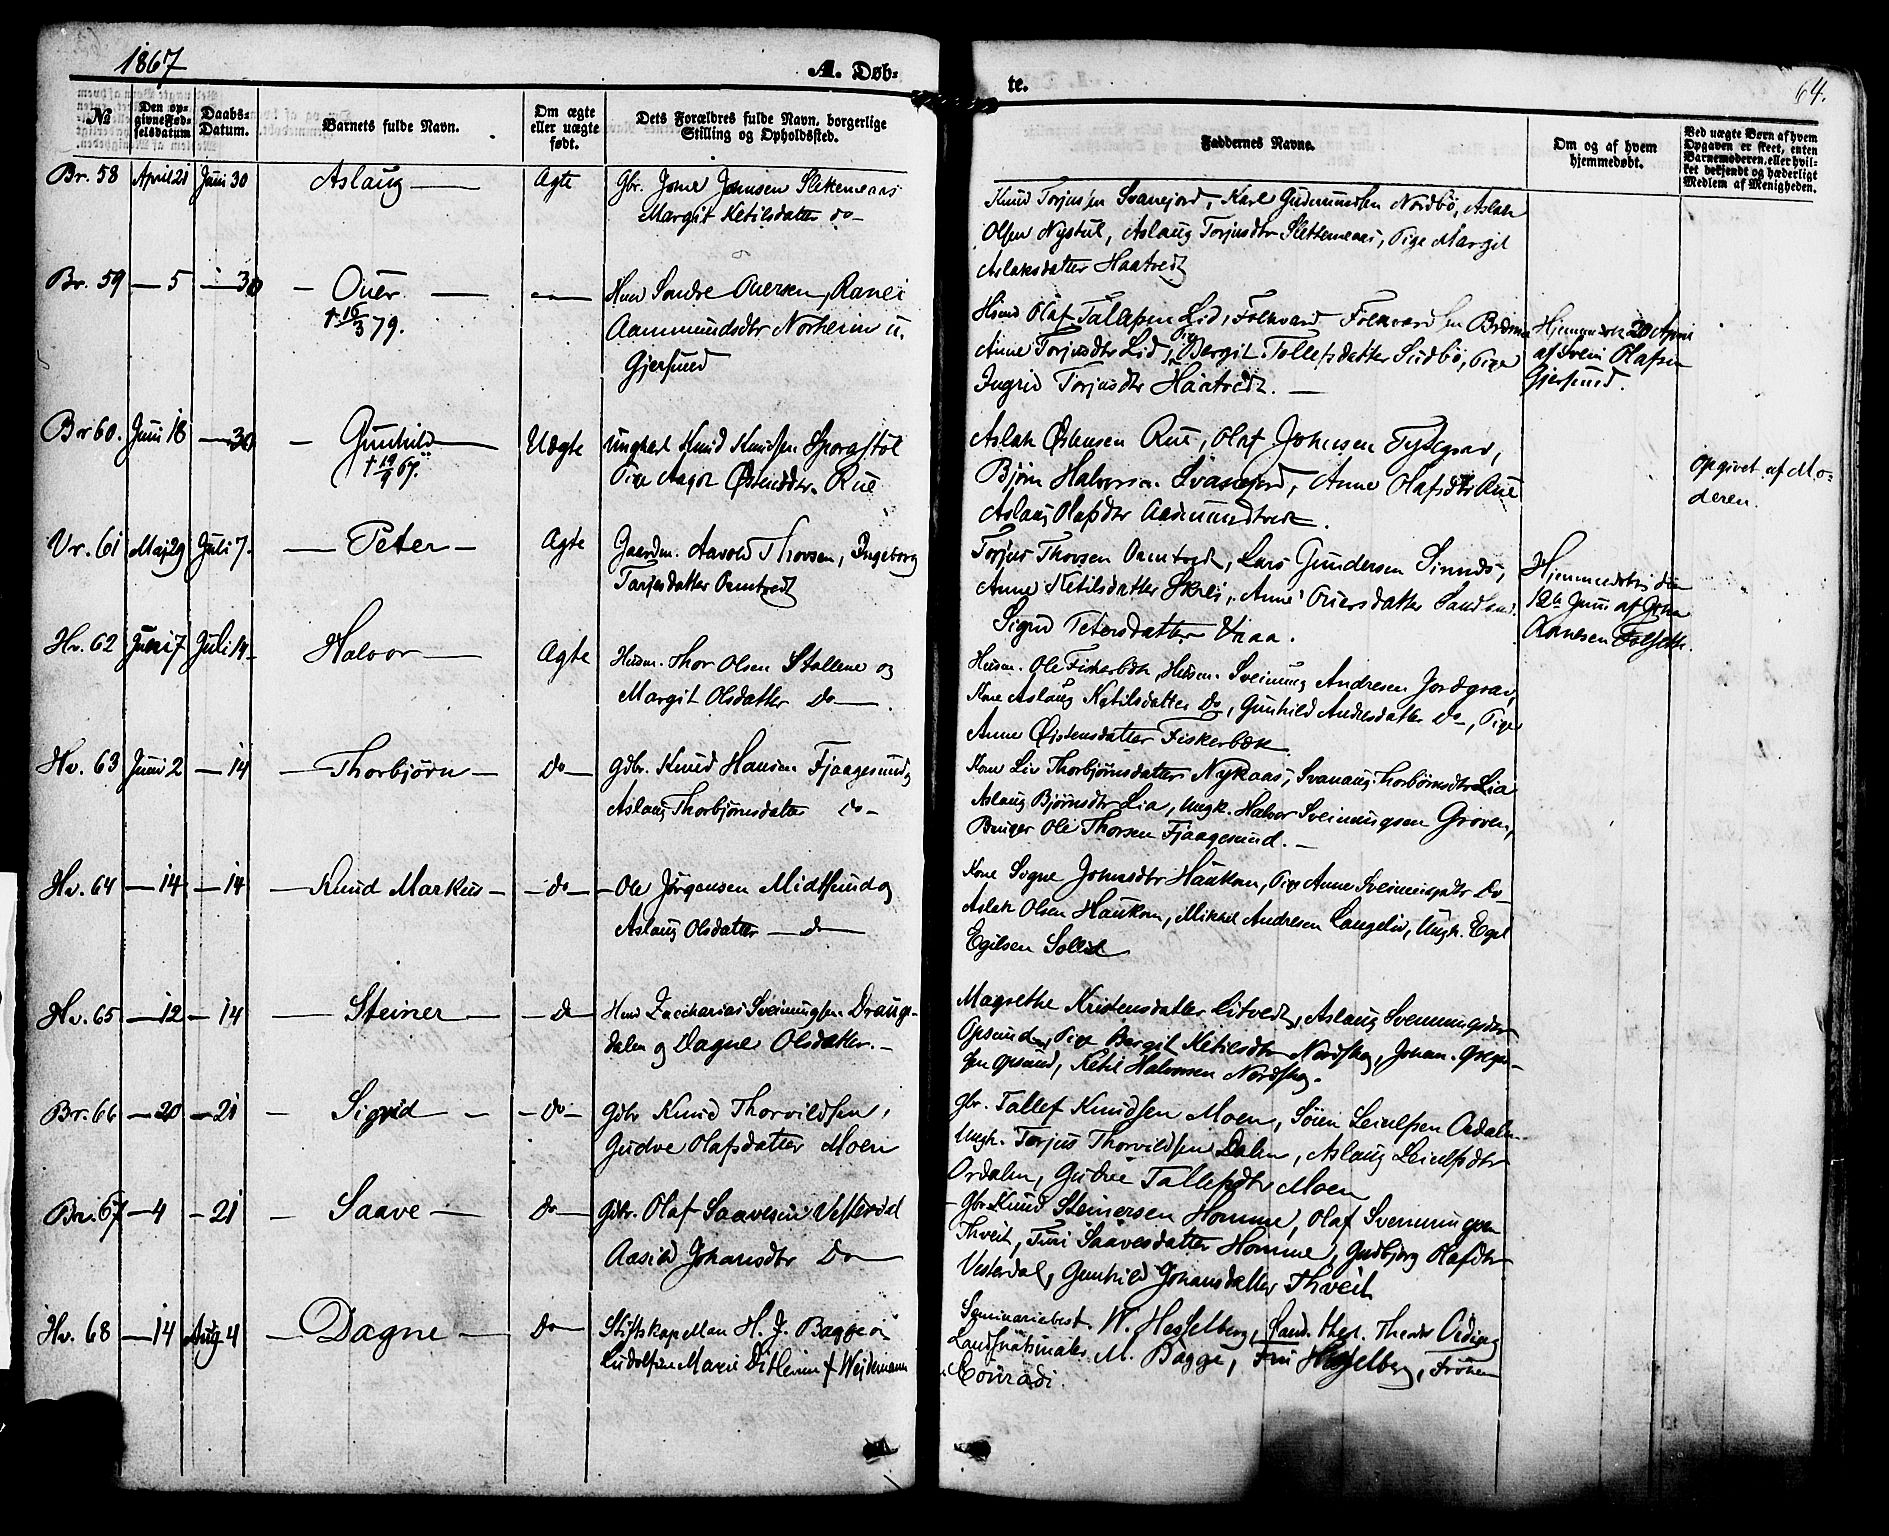 1867
A. Døb-
te.
64.
№
Den op-
givne Fød-
selsdatum
Daabs-
Datum.
Barnets fulde Navn.
Om ægte
eller uægte
født.
Dets Forældres fulde Navn, borgerlige
Stilling og Opholdssted.
Faddernes Navne.
Om og af hvem
hjemmedøbt.
Ved uægte Børn af hvem
Opgaven er skeet, enten
Barnemoderen, eller hvil-
ket bekjendt og hæderligt
Medlem af Menigheden.
Br. 58 April 21 Juni 30 Aslaug Ægte
Gbr. Jone Jonsen Slettemeaas
Margit Ketilsdatter do
Knud Torjussen Svanejord, Karl Gudmundsen Nordbø, Aslak
Olsen Nystul, Aslaug Torjusdtr Slettemeaas, Pige Margit
Aslaksdatter Haatvedt
Br. 59 — 5 — 30 — Over —
† 16/3 79.
Sondre Oversen, Ranei
Aammundsdtr Norheim u.
Gjersund
Olaf Lid, Folkvard
Anne Torjusdtr Lid, Pige Bergit Tollefsdatter Sudbø, Pige
Ingrid Torjusdtr Haatvedt. —
Hjemmedøbt 20 April
af Svein Olafsen
Gjersund.
Br 60. Juni 18 — 30 — Gunhild Uægte
† 19/9 67.
Ungkarl Knud Knudsen Sporastøl
Pige Aagot Østensdtr. Rue
Aslak Østensen Rue, Olaf Johnsen
Bjørn Halvorsen Svanejord, Anne Olafsdtr Rue
Aslaug Olafsdtr
Opgivet af Mo-
deren.
Vr. 61 Maj 29 Juli 7. — Peter — Ægte
Gaardm. Aavold Thorsen, Ingeborg
Tarjesdatter Omtvedt
Torjus Thorsen Omtvedt, Lars Gundersen Sinnes,
Anne Ketilsdatter Skrei, Anne Oversdatter
Sigrid Petersdatter Vraa.
Hjemmedøbt den
12te Juni af
Aanesen
Hv. 62 Juni 7 Juli 14 Halvor — Ægte
Husm. Thor Olsen Stallene og
Margit Olsdatter Do —
Husm. Ole Fiskerbæk, Husm. Sveinung Andresen Jordgrav,
Kone Aslaug Ketilsdatter Do, Gunhild Andresdatter Do, Pige
Anne Øistensdatter Fiskerbæk
Hv. 63 Juni 2 — 14 — Thorbjørn — Do
Gdbr. Knud Hansen Fjaagesund og
Aslaug Thorbjørnsdatter do
Kone Liv Thorbjørnsdatter Nykaas, Svanaug Thorbørnsdtr Lia
Aslaug Bjørnsdtr Lia, Ungk. Halvor Sveinungsen Groven,
Ole Thorsen Fjaagesund. —
Hv. 64 — 14 — 14 — Knud Markus — do —
Ole Jørgensen Midtsund og
Aslaug Olsdatter — Do —
Kone Signe Johnsdtr Haukom, Pige Anne Sveinungsdtr Do
Aslak Olsen Haukom, Mikkel Andresen Langeliv, Ungk. Egil
Egilsen Sollid
Hv. 65 — 12 — 14 — Steiner — Do —
Zaccharias Sveinungsen Drauge-
dalen og Dagne Olsdatter. —
Magrethe Kristensdatter Litvedt, Aslaug Svenungsdtr
Opsund, Pige Bergit Ketilsdtr Nordskog, Johan
Opsund, Ketil Halvorsen Nordskog.
Br. 66 — 20 — 21 — Sigrid — Do —
Gdbr Knud Thorvildsen,
Gudve Olafsdatter Moen
Gbr. Tallef Knudsen Moen, Søien Leiulfsen Ordalen
Ungk. Torjus Thorvildsen Dalen, Aslaug Leiulfsdtr
Ordalen, Gudve Tallefsdtr Moen
Br. 67 — 4 — 21 — Saave — Do —
Gdbr. Olaf Saavesen Vesterdal
Aasild Johansdtr Do —
Gbr. Knud Steinersen Homme, Olaf Svenungsen
Thveit, Turi Saavesdatter Homme, Gudbjørg Olafsdtr
Vesterdal, Gunhild Johansdatter Thveit
Hv. 68 — 14 Aug 4 — Dagne — Do —
Stiftskapellan H. J. Bagge og
Ludolfine Marie Ditlevine f. Weidemann
Seminariebest. W. Hesselberg, Cand. theol. Theodor Ording
M. Bagge, Fru Hesselberg, Frøken
Conradi.